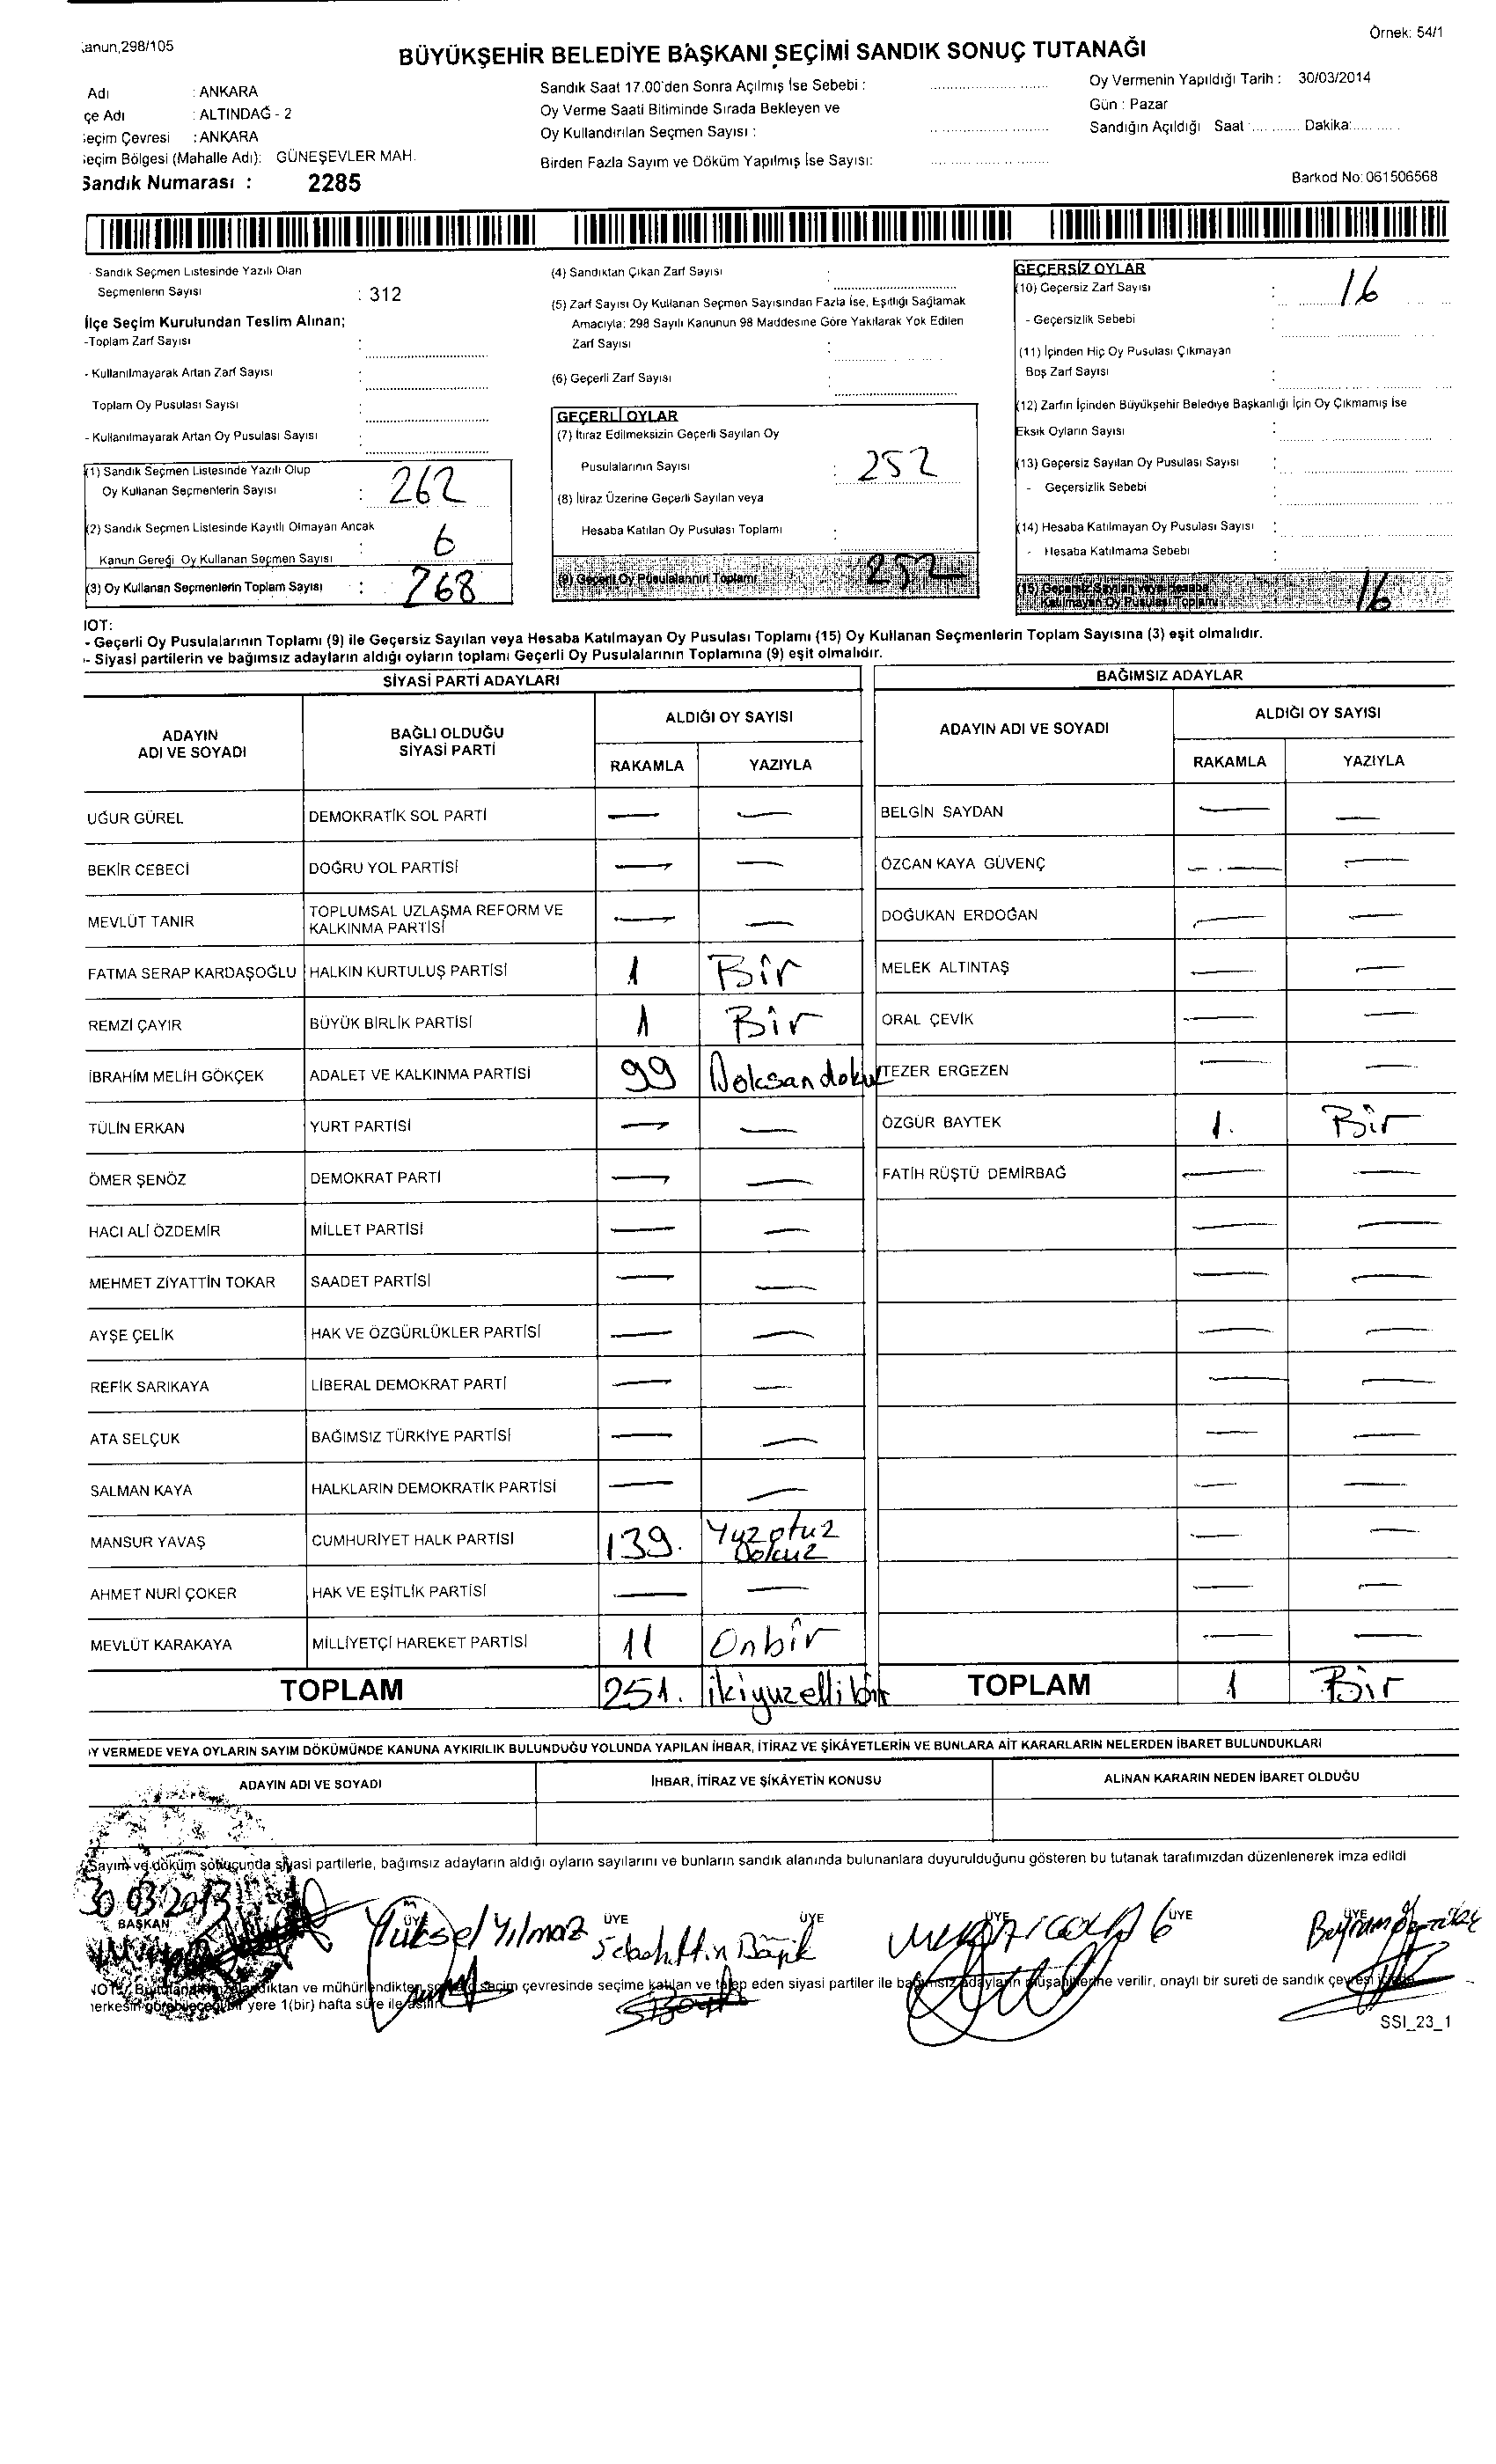 Örnek: 54/1
anun,298/105
BÜYÜKŞEHİR BELEDİYE BAŞKANI SEÇİMİ SANDIK SONUÇ TUTANAĞI
Adı : ANKARA
çe Adı : ALTINDAĞ - 2
eçim Çevresi : ANKARA
eçim Bölgesi (Mahalle Adı): GÜNEŞEVLER MAH.
Sandık Numarası : 2285
Sandık Saat 17.00'den Sonra Açılmış İse Sebebi :
Oy Verme Saati Bitiminde Sırada Bekleyen ve
Oy Kullandırılan Seçmen Sayısı :
Birden Fazla Sayım ve Döküm Yapılmış İse Sayısı:
Oy Vermenin Yapıldığı Tarih : 30/03/2014
Gün : Pazar
Sandığın Açıldığı Saat :............ Dakika:............
Barkod No: 061506568
- Sandık Seçmen Listesinde Yazılı Olan
Seçmenlerin Sayısı : 312
İlçe Seçim Kurulundan Teslim Alınan;
-Toplam Zarf Sayısı :
- Kullanılmayarak Artan Zarf Sayısı :
Toplam Oy Pusulası Sayısı :
- Kullanılmayarak Artan Oy Pusulası Sayısı :
(1) Sandık Seçmen Listesinde Yazılı Olup
Oy Kullanan Seçmenlerin Sayısı : 262
(2) Sandık Seçmen Listesinde Kayıtlı Olmayan Ancak
Kanun Gereği Oy Kullanan Seçmen Sayısı : 6
(3) Oy Kullanan Seçmenlerin Toplam Sayısı : 268
(4) Sandıktan Çıkan Zarf Sayısı :
(5) Zarf Sayısı Oy Kullanan Seçmen Sayısından Fazla İse, Eşitliği Sağlamak
Amacıyla; 298 Sayılı Kanunun 98 Maddesine Göre Yakılarak Yok Edilen
Zarf Sayısı :
(6) Geçerli Zarf Sayısı :
GEÇERLİ OYLAR
(7) İtiraz Edilmeksizin Geçerli Sayılan Oy
Pusulalarının Sayısı : 252
(8) İtiraz Üzerine Geçerli Sayılan veya
Hesaba Katılan Oy Pusulası Toplamı :
(9) Geçerli Oy Pusulalarının Toplamı : 252
GEÇERSİZ OYLAR
(10) Geçersiz Zarf Sayısı : 16
- Geçersizlik Sebebi :
(11) İçinden Hiç Oy Pusulası Çıkmayan
Boş Zarf Sayısı :
(12) Zarfın İçinden Büyükşehir Belediye Başkanlığı İçin Oy Çıkmamış İse
Eksik Oyların Sayısı :
(13) Geçersiz Sayılan Oy Pusulası Sayısı :
- Geçersizlik Sebebi :
(14) Hesaba Katılmayan Oy Pusulası Sayısı :
- Hesaba Katılmama Sebebi :
(15) Geçersiz Sayılan veya Hesaba
Katılmayan Oy Pusulası Toplamı 16
IOT:
- Geçerli Oy Pusulalarının Toplamı (9) ile Geçersiz Sayılan veya Hesaba Katılmayan Oy Pusulası Toplamı (15) Oy Kullanan Seçmenlerin Toplam Sayısına (3) eşit olmalıdır.
- Siyasi partilerin ve bağımsız adayların aldığı oyların toplamı Geçerli Oy Pusulalarının Toplamına (9) eşit olmalıdır.
SİYASİ PARTİ ADAYLARI
ADAYIN ADI VE SOYADI
BAĞLI OLDUĞU SİYASİ PARTİ
ALDIĞI OY SAYISI
RAKAMLA YAZIYLA
UĞUR GÜREL DEMOKRATİK SOL PARTİ — —
BEKİR CEBECİ DOĞRU YOL PARTİSİ — —
MEVLÜT TANIR TOPLUMSAL UZLAŞMA REFORM VE KALKINMA PARTİSİ — —
FATMA SERAP KARDAŞOĞLU HALKIN KURTULUŞ PARTİSİ 1 Bir
REMZİ ÇAYIR BÜYÜK BİRLİK PARTİSİ 1 Bir
İBRAHİM MELİH GÖKÇEK ADALET VE KALKINMA PARTİSİ 99 Doksandokuz
TÜLİN ERKAN YURT PARTİSİ — —
ÖMER ŞENÖZ DEMOKRAT PARTİ — —
HACI ALİ ÖZDEMİR MİLLET PARTİSİ — —
MEHMET ZİYATTİN TOKAR SAADET PARTİSİ — —
AYŞE ÇELİK HAK VE ÖZGÜRLÜKLER PARTİSİ — —
REFİK SARIKAYA LİBERAL DEMOKRAT PARTİ — —
ATA SELÇUK BAĞIMSIZ TÜRKİYE PARTİSİ — —
SALMAN KAYA HALKLARIN DEMOKRATİK PARTİSİ — —
MANSUR YAVAŞ CUMHURİYET HALK PARTİSİ 139. Yüzotuz Dokuz
AHMET NURİ ÇOKER HAK VE EŞİTLİK PARTİSİ — —
MEVLÜT KARAKAYA MİLLİYETÇİ HAREKET PARTİSİ 11 Onbir
TOPLAM 251. ikiyüzellibir
BAĞIMSIZ ADAYLAR
ADAYIN ADI VE SOYADI
ALDIĞI OY SAYISI
RAKAMLA YAZIYLA
BELGİN SAYDAN — —
ÖZCAN KAYA GÜVENÇ — —
DOĞUKAN ERDOĞAN — —
MELEK ALTINTAŞ — —
ORAL ÇEVİK — —
TEZER ERGEZEN — —
ÖZGÜR BAYTEK 1. Bir
FATİH RÜŞTÜ DEMİRBAĞ — —
TOPLAM 1 Bir
Y VERMEDE VEYA OYLARIN SAYIM DÖKÜMÜNDE KANUNA AYKIRILIK BULUNDUĞU YOLUNDA YAPILAN İHBAR, İTİRAZ VE ŞİKÂYETLERİN VE BUNLARA AİT KARARLARIN NELERDEN İBARET BULUNDUKLARI
ADAYIN ADI VE SOYADI İHBAR, İTİRAZ VE ŞİKÂYETİN KONUSU ALINAN KARARIN NEDEN İBARET OLDUĞU
Sayım ve döküm sonucunda siyasi partilerle, bağımsız adayların aldığı oyların sayılarını ve bunların sandık alanında bulunanlara duyurulduğunu gösteren bu tutanak tarafımızdan düzenlenerek imza edildi
30.03.2013
BAŞKAN ÜYE ÜYE ÜYE ÜYE ÜYE ÜYE
Yüksel Yılmaz
NOT: ve mühürlendikten seçim çevresinde seçime katılan ve talep eden siyasi partiler ile bağımsız adayların müşahitlerine verilir, onaylı bir sureti de sandık çevresi
herkesin görebileceği bir yere 1(bir) hafta süre ile asılır.
SSI_23_1